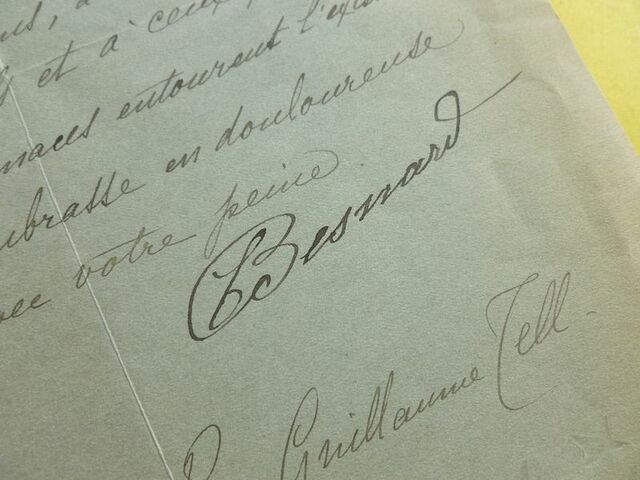 et à ceux
entourent l'exis
embrasse en douloureuse
avec votre peine.
Besnard
R. Guillaume Tell -